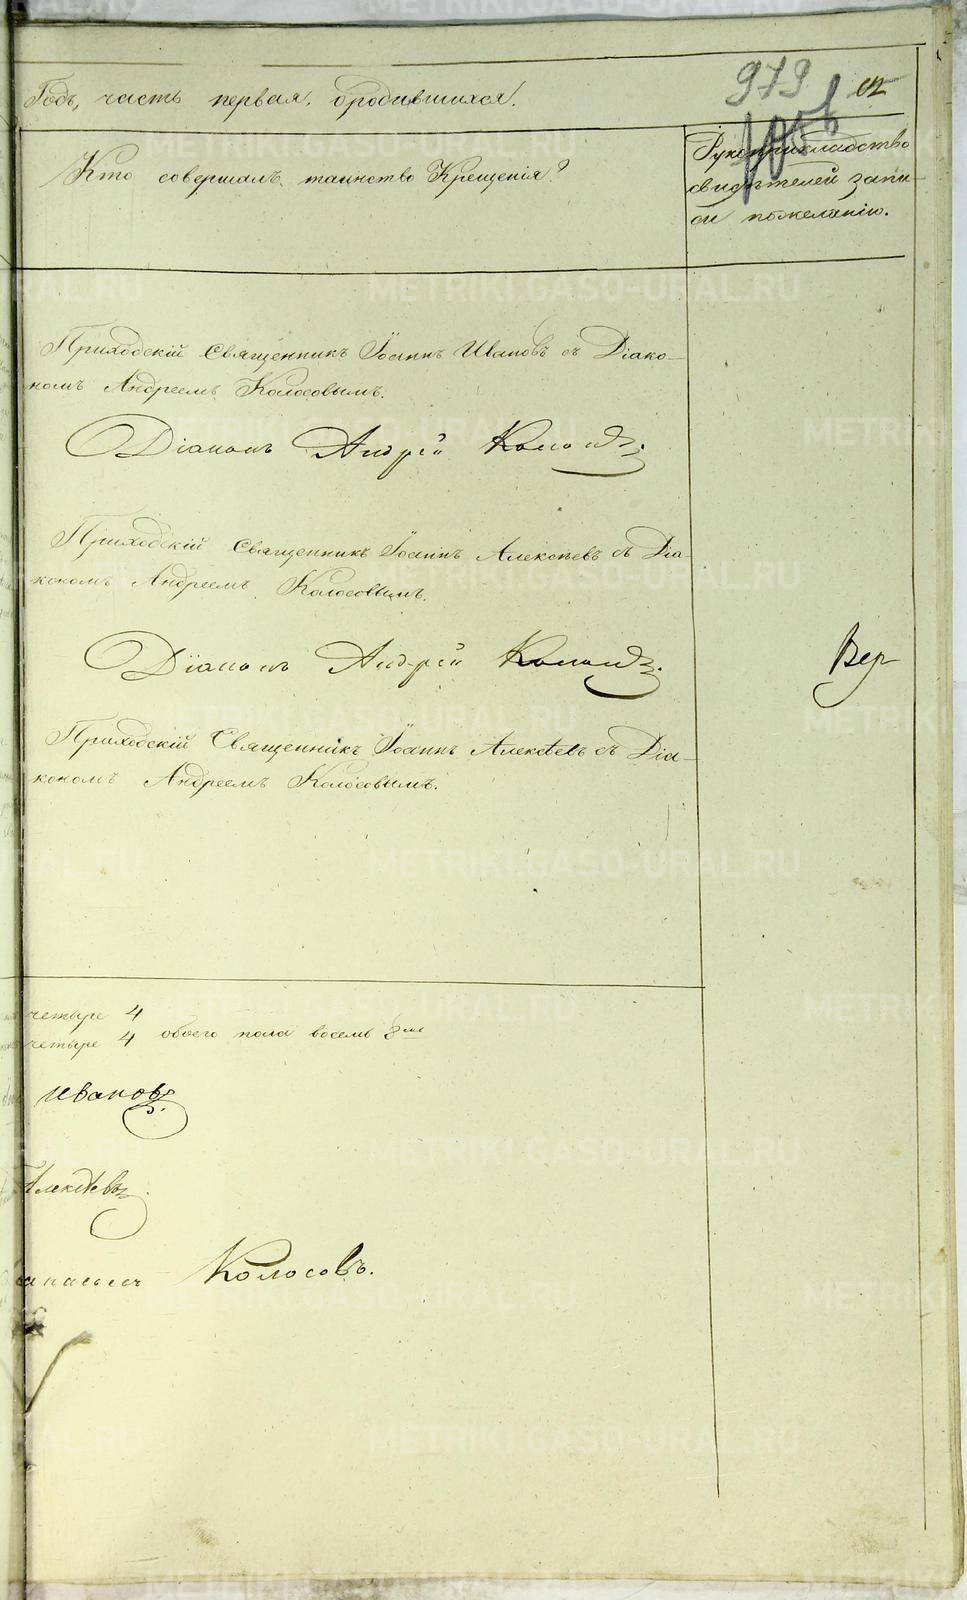 979
Годъ, часть первая, ородившихся.
Кто совершалъ таинство Крещенія?
Рукоприкладство
свидѣтелей запи-
си пожеланію.
Приходскій Священникъ Іоаннъ Ивановъ съ Діако-
номъ Андреемъ Колосовымъ.
Діаконъ Андрей Колосовъ.
Приходскій Священникъ Іоаннъ Алексѣевъ съ Діа-
кономъ Андреемъ Колосовымъ.
Діаконъ Андрей Колосовъ.
Вер
Приходскій Священникъ Іоаннъ Алексѣевъ съ Діа-
кономъ Андреемъ Колосовымъ.
четыре 4
четыре 4 обоего пола восемь 8
Ивановъ.
Алексѣевъ
Колосовъ.
METRIKI.GASO-URAL.RU